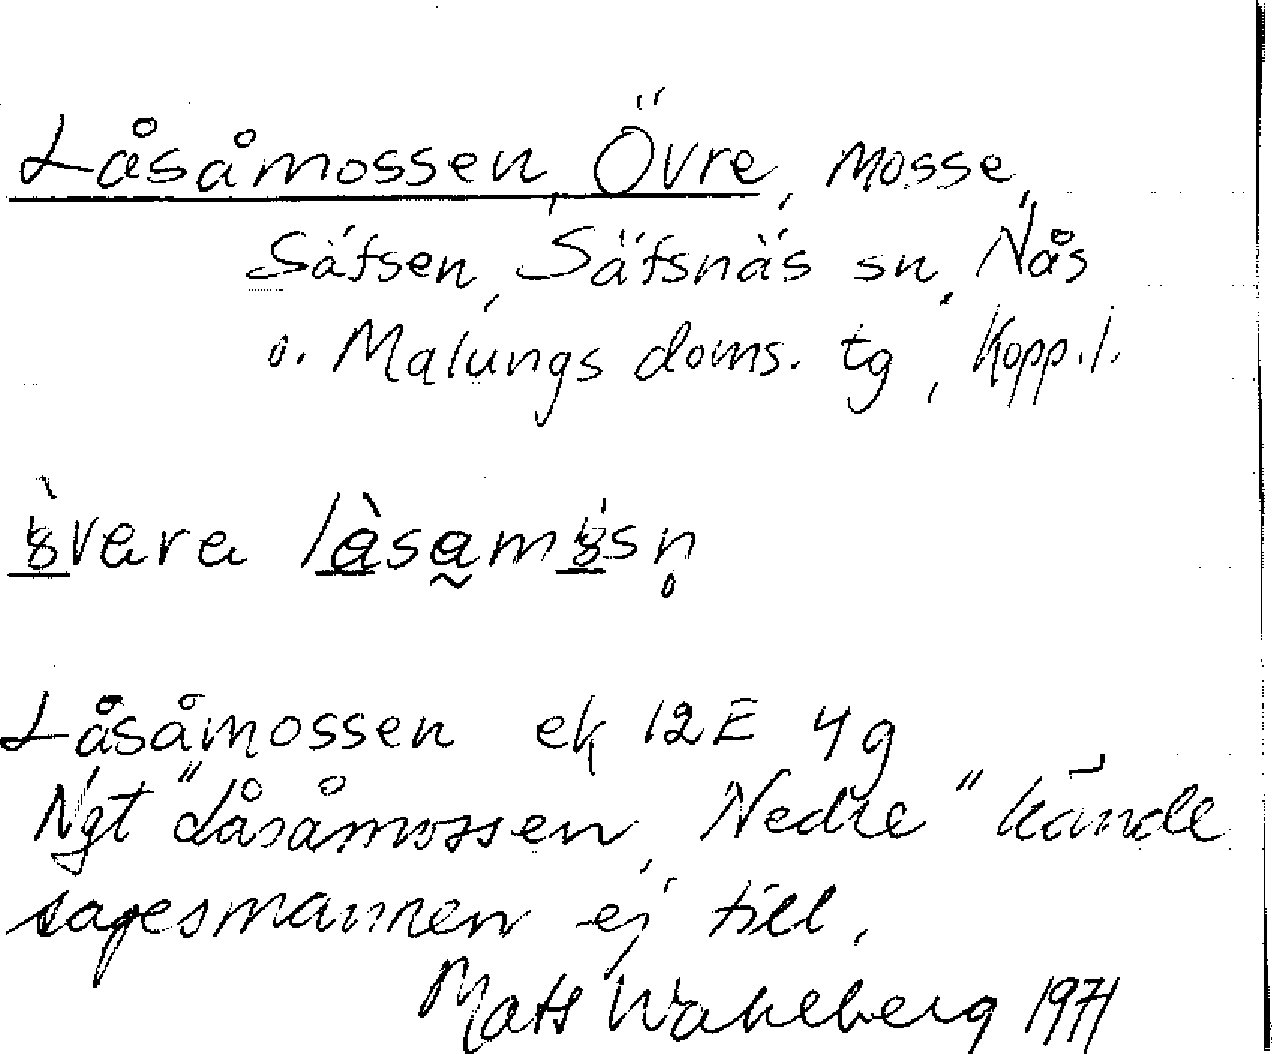 Låsåmossen, Övre, mosse,
Säfsen, Säfsnäs sn, Nås
o. Malungs doms. tg, Kopp.l.
Låsåmossen ek 12E 4g
Ngt "Låsåmossen, Nedre" kände
sagesmannen ej till.
Mats Wahlberg 1971